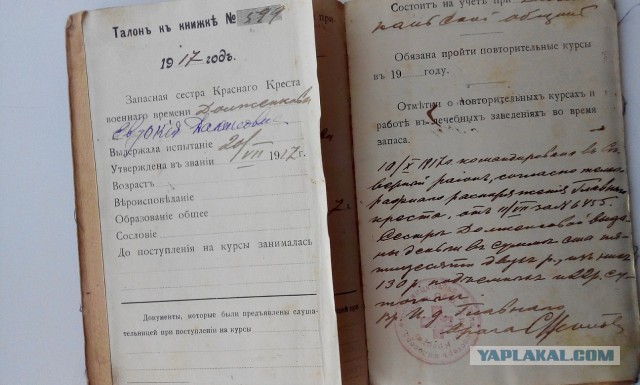 Талонъ къ книжкѣ № 599
1917 годъ.
Запасная сестра Краснаго Креста
военнаго времени Долженкова
Выдержала испытанiе 20/VII
Утверждена въ званiи 1917 г.
Возрастъ
Вѣроисповѣданiе
Образованiе общее
Сословiе
До поступленiя на курсы занималась
Документы, которые были предъявлены слуша-
тельницей при поступленiи на курсы
при.
Состоитъ на учетѣ при
общинѣ
Обязана пройти повторительные курсы
въ 19 году.
Отмѣтки о повторительныхъ курсахъ и
работѣ въ лечебныхъ заведенiяхъ во время
запаса.
10/X 1917г. командирована въ Сѣ-
верный районъ, согласно теле-
распоряженiя Главнаго
креста, отъ 11/VII за № 6455.
Сестрѣ Долженковой выда-
ны деньги въ суммѣ ста пя-
тидесяти двухъ р., изъ нихъ
130 р. подъемныхъ и 22 р. су-
точныхъ.
Главнаго
Врача
YAPLAKAL.COM